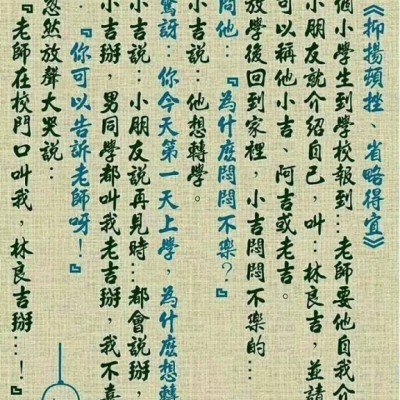 《抑揚頓挫、省略得宜》
個小學生到學校報到…老師要他自我介
小朋友就介紹自己，叫…林良吉，並請
可以稱他小吉、阿吉或老吉。
放學後回到家裡，小吉悶悶不樂的…
問他…『為什麼悶悶不樂？』
小吉說…他想轉學。
驚訝…你今天第一天上學，為什麼想轉
小吉說…小朋友說再見時…都會說掰，
小吉掰，男同學都叫我老吉掰，我不喜
『你可以告訴老師呀！』
忽然放聲大哭說…
『老師在校門口叫我，林良吉掰…！』